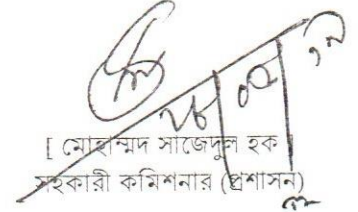 [ মোহাম্মদ সাজেদুল হক
সহকারী কমিশনার (প্রশাসন)